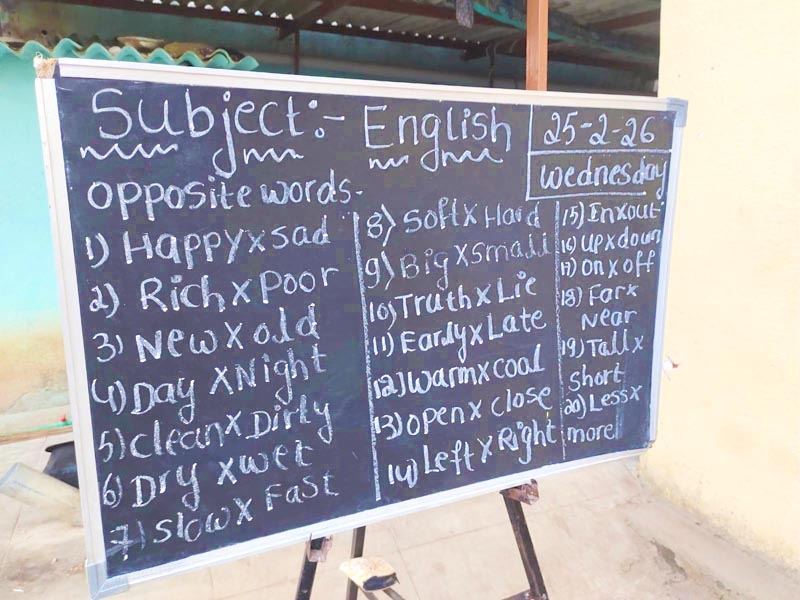 Subject:- English
25-2-26
wednesday
opposite words.
1) Happy x sad
2) Rich x poor
3) New x old
4) Day x Night
5) clean x Dirty
6) Dry x wet
7) Slow x Fast
8) Soft x Hard
9) Big x small
10) Truth x Lie
11) Early x Late
12) warm x cool
13) open x close
14) Left x Right
15) In x out
16) up x down
17) on x off
18) Far x
Near
19) Tall x
short
20) Less x
more